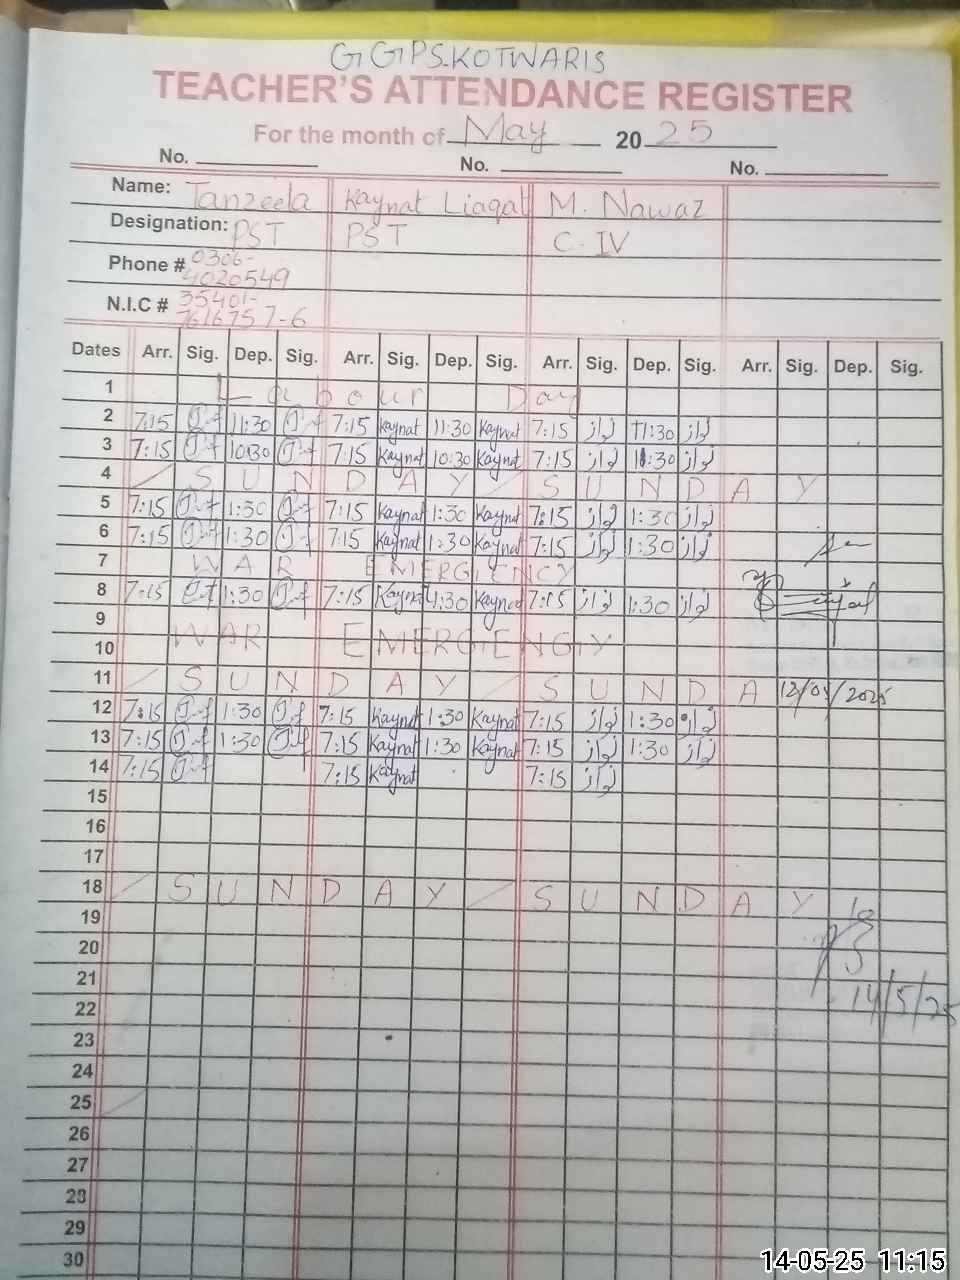 GGPS.KOTWARIS
TEACHER'S ATTENDANCE REGISTER
For the month of May 2025
No. No. No.
Name: Tanzeela Kaynat Liaqat M. Nawaz
Designation: PST PST C-IV
Phone # 0306-
4020549
N.I.C # 35401-
7616757-6
Dates Arr. Sig. Dep. Sig. Arr. Sig. Dep. Sig. Arr. Sig. Dep. Sig. Arr. Sig. Dep. Sig.
1 Labour Day
2 7:15 11:30 7:15 Kaynat 11:30 Kaynat 7:15 نواز 11:30 نواز
3 7:15 10:30 7:15 Kaynat 10:30 Kaynat 7:15 نواز :30 نواز
4 SUNDAY SUNDAY
5 7:15 1:30 7:15 Kaynat 1:30 Kaynat 7:15 نواز 1:30 نواز
6 7:15 1:30 7:15 Kaynat 1:30 Kaynat 7:15 نواز 1:30 نواز
7 WAR EMERGIENCY
8 7:15 1:30 7:15 Kaynat 1:30 Kaynat 7:15 نواز 1:30 نواز
9
10 WAR EMERGIENGY
11 SUNDAY SUNDA 12/05/2025
12 7:15 1:30 7:15 Kaynat 1:30 Kaynat 7:15 نواز 1:30 نواز
13 7:15 1:30 7:15 Kaynat 1:30 Kaynat 7:15 نواز 1:30 نواز
14 7:15 7:15 Kaynat 7:15 نواز
15
16
17
18 SUNDAY SUNDAY
19
20
21
22 14/5/25
23
24
25
26
27
28
29
30
14-05-25 11:15